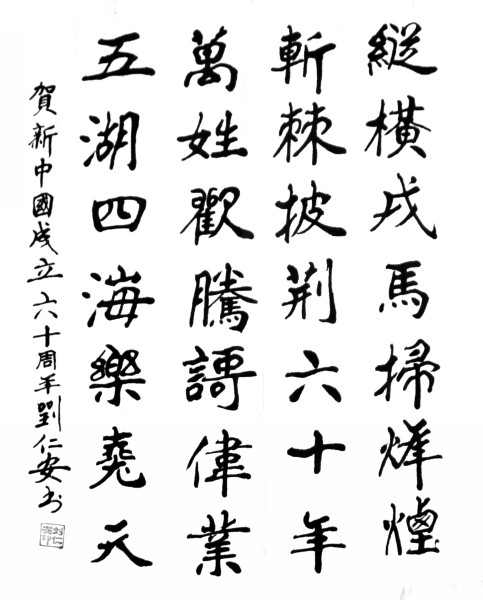 縱橫戎馬掃烽煙
斬棘披荆六十年
萬姓歡騰謌偉業
五湖四海樂堯天
賀新中國成立六十周年劉仁安书